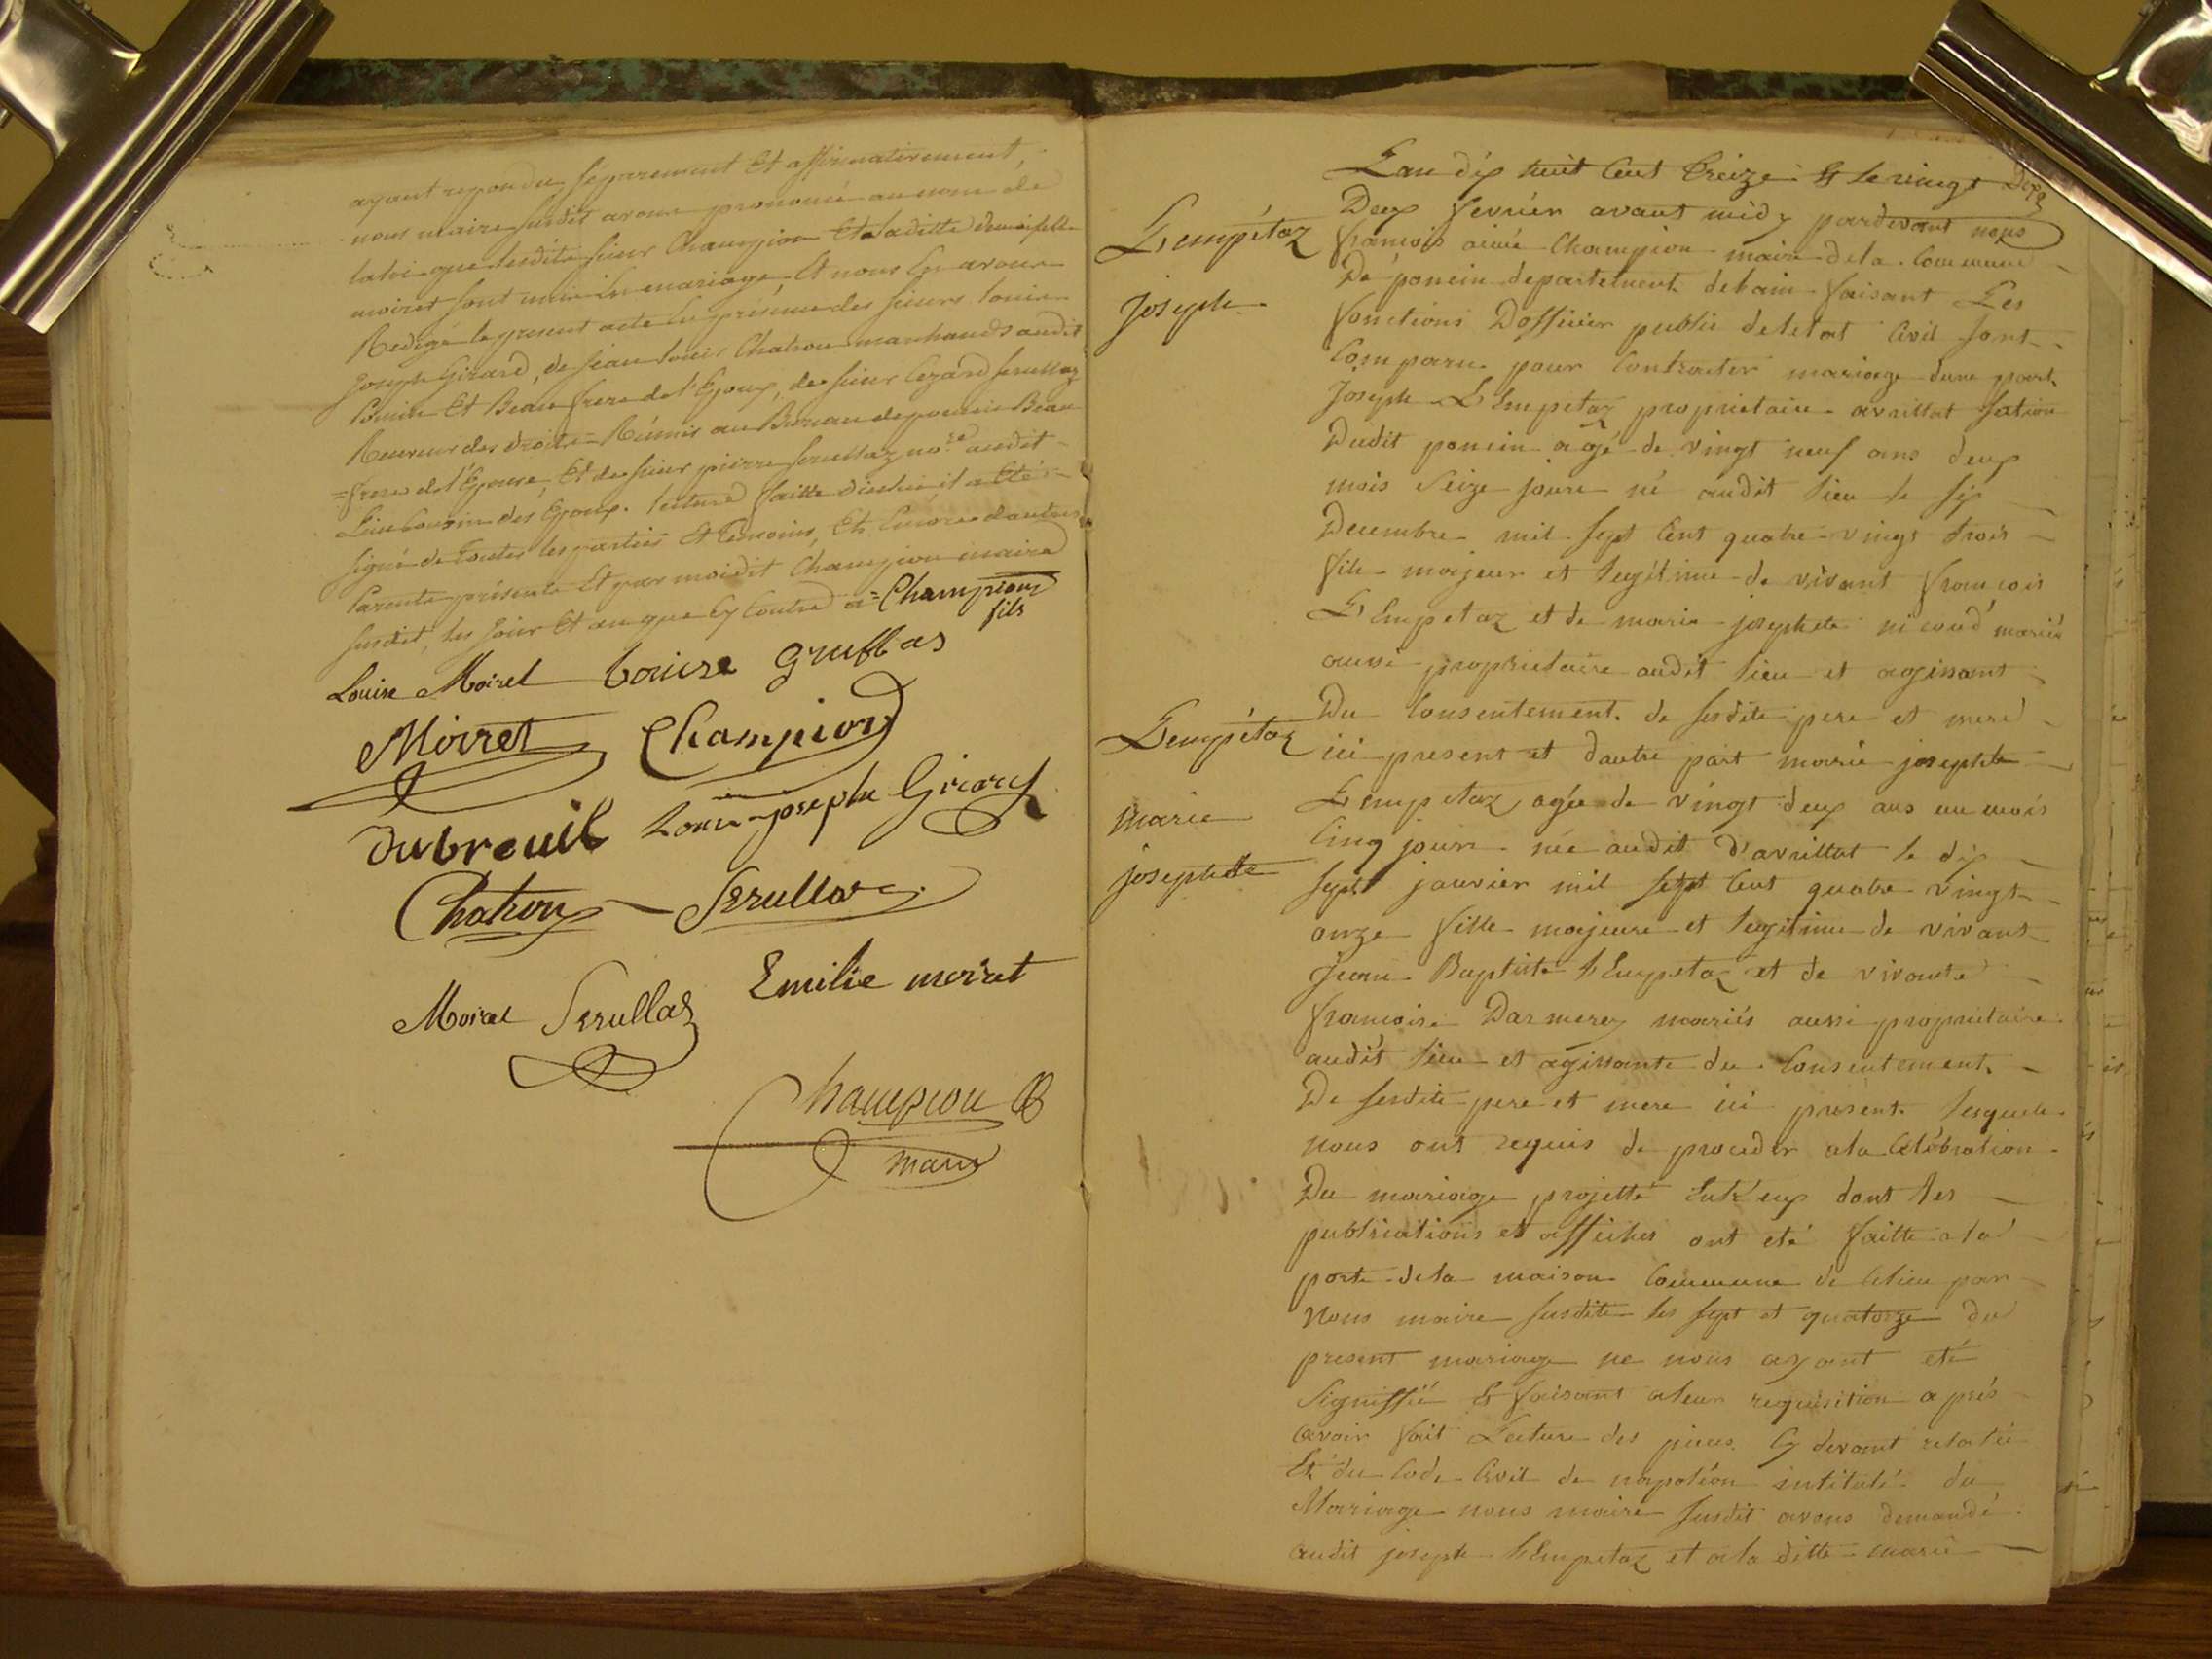 ayant repondu separement Et affirmativement,
nous maire susdit avons prononcé au nom de
la loi que lesdits sieur Champion Et laditte demoiselle
moiret sont unis En mariage, Et nous En avons
Redigé le present acte En présence des sieurs louis
joseph Girard, de jean louis Chatron marchands audit
Poncin Et Beau frere de l'Epoux, de sieur Cezard serullaz
Receveur des droits Réunis au Bureau de poncin Beau
=frere de l'Epouse, Et de sieur pierre serullaz no.re audit
Lieu Cousin des Epoux. lecture faitte d'icelui il a Eté
signé de toutes les parties Et temoins, Et Encore d'autres
Parents présents Et par moidit Champion maire
susdit, les jour Et an que Cy Contre a= Champion
fils
Louise Moiret louise gruffas
Moiret Champion
dubreuil Louis joseph Girard
Chatron Serullaz
Moiret Serullaz Emilie moirat
Champion
maire
Lempétaz
joseph
Lempétaz
marie
josephette
L'an dix huit Cent treize & le vingt Dexz
Deux fevrier avant midy pardevant nous
francois aimé Champion maire de la Commune
De poncin departement de l'ain faisant Les
fonctions D'officier public de letat Civil sont
Comparu pour Contracter mariage d'une part
Joseph LEmpetaz proprietaire avrillat sation
Dudit poncin agé de vingt neuf ans deux
mois Seize jours né audit lieu le six
Decembre mil sept Cent quatre vingt trois
fils majeur et Legitime de vivant francois
LEmpetaz et de marie josephete nicoud mariés
aussi proprietaire audit lieu et agissant
Du Consentement de sesdits pere et mere
ici present et d'autre part marie josephte
Lempetaz agée de vingt deux ans un mois
Cinq jours née audit d'avrillat le dix
sept janvier mil sept Cent quatre vingt
onze fille majeure et Legitime de vivant
Jean Baptiste LEmpetaz et de vivante
francoise Darmerey mariés aussi proprietaire
audit lieu et agissante du Consentement
De sesdits pere et mere ici present. lesquels
nous ont requis de proceder a la Celébration
Du mariage projetté Entr'eux dont les
publications et affiches ont eté faitte a la
porte de la maison Commune de Celieu par
Nous maire susdits les sept et quatorze du
present mariage ne nous ayant eté
Signiffié & faisant a leur requisition aprés
avoir fait Lecture des pieces Cy devant relatée
Et du Code Civil de napoléon intitulé du
Mariage nous maire susdit avons demandé
audit joseph LEmpetaz et a la ditte marie